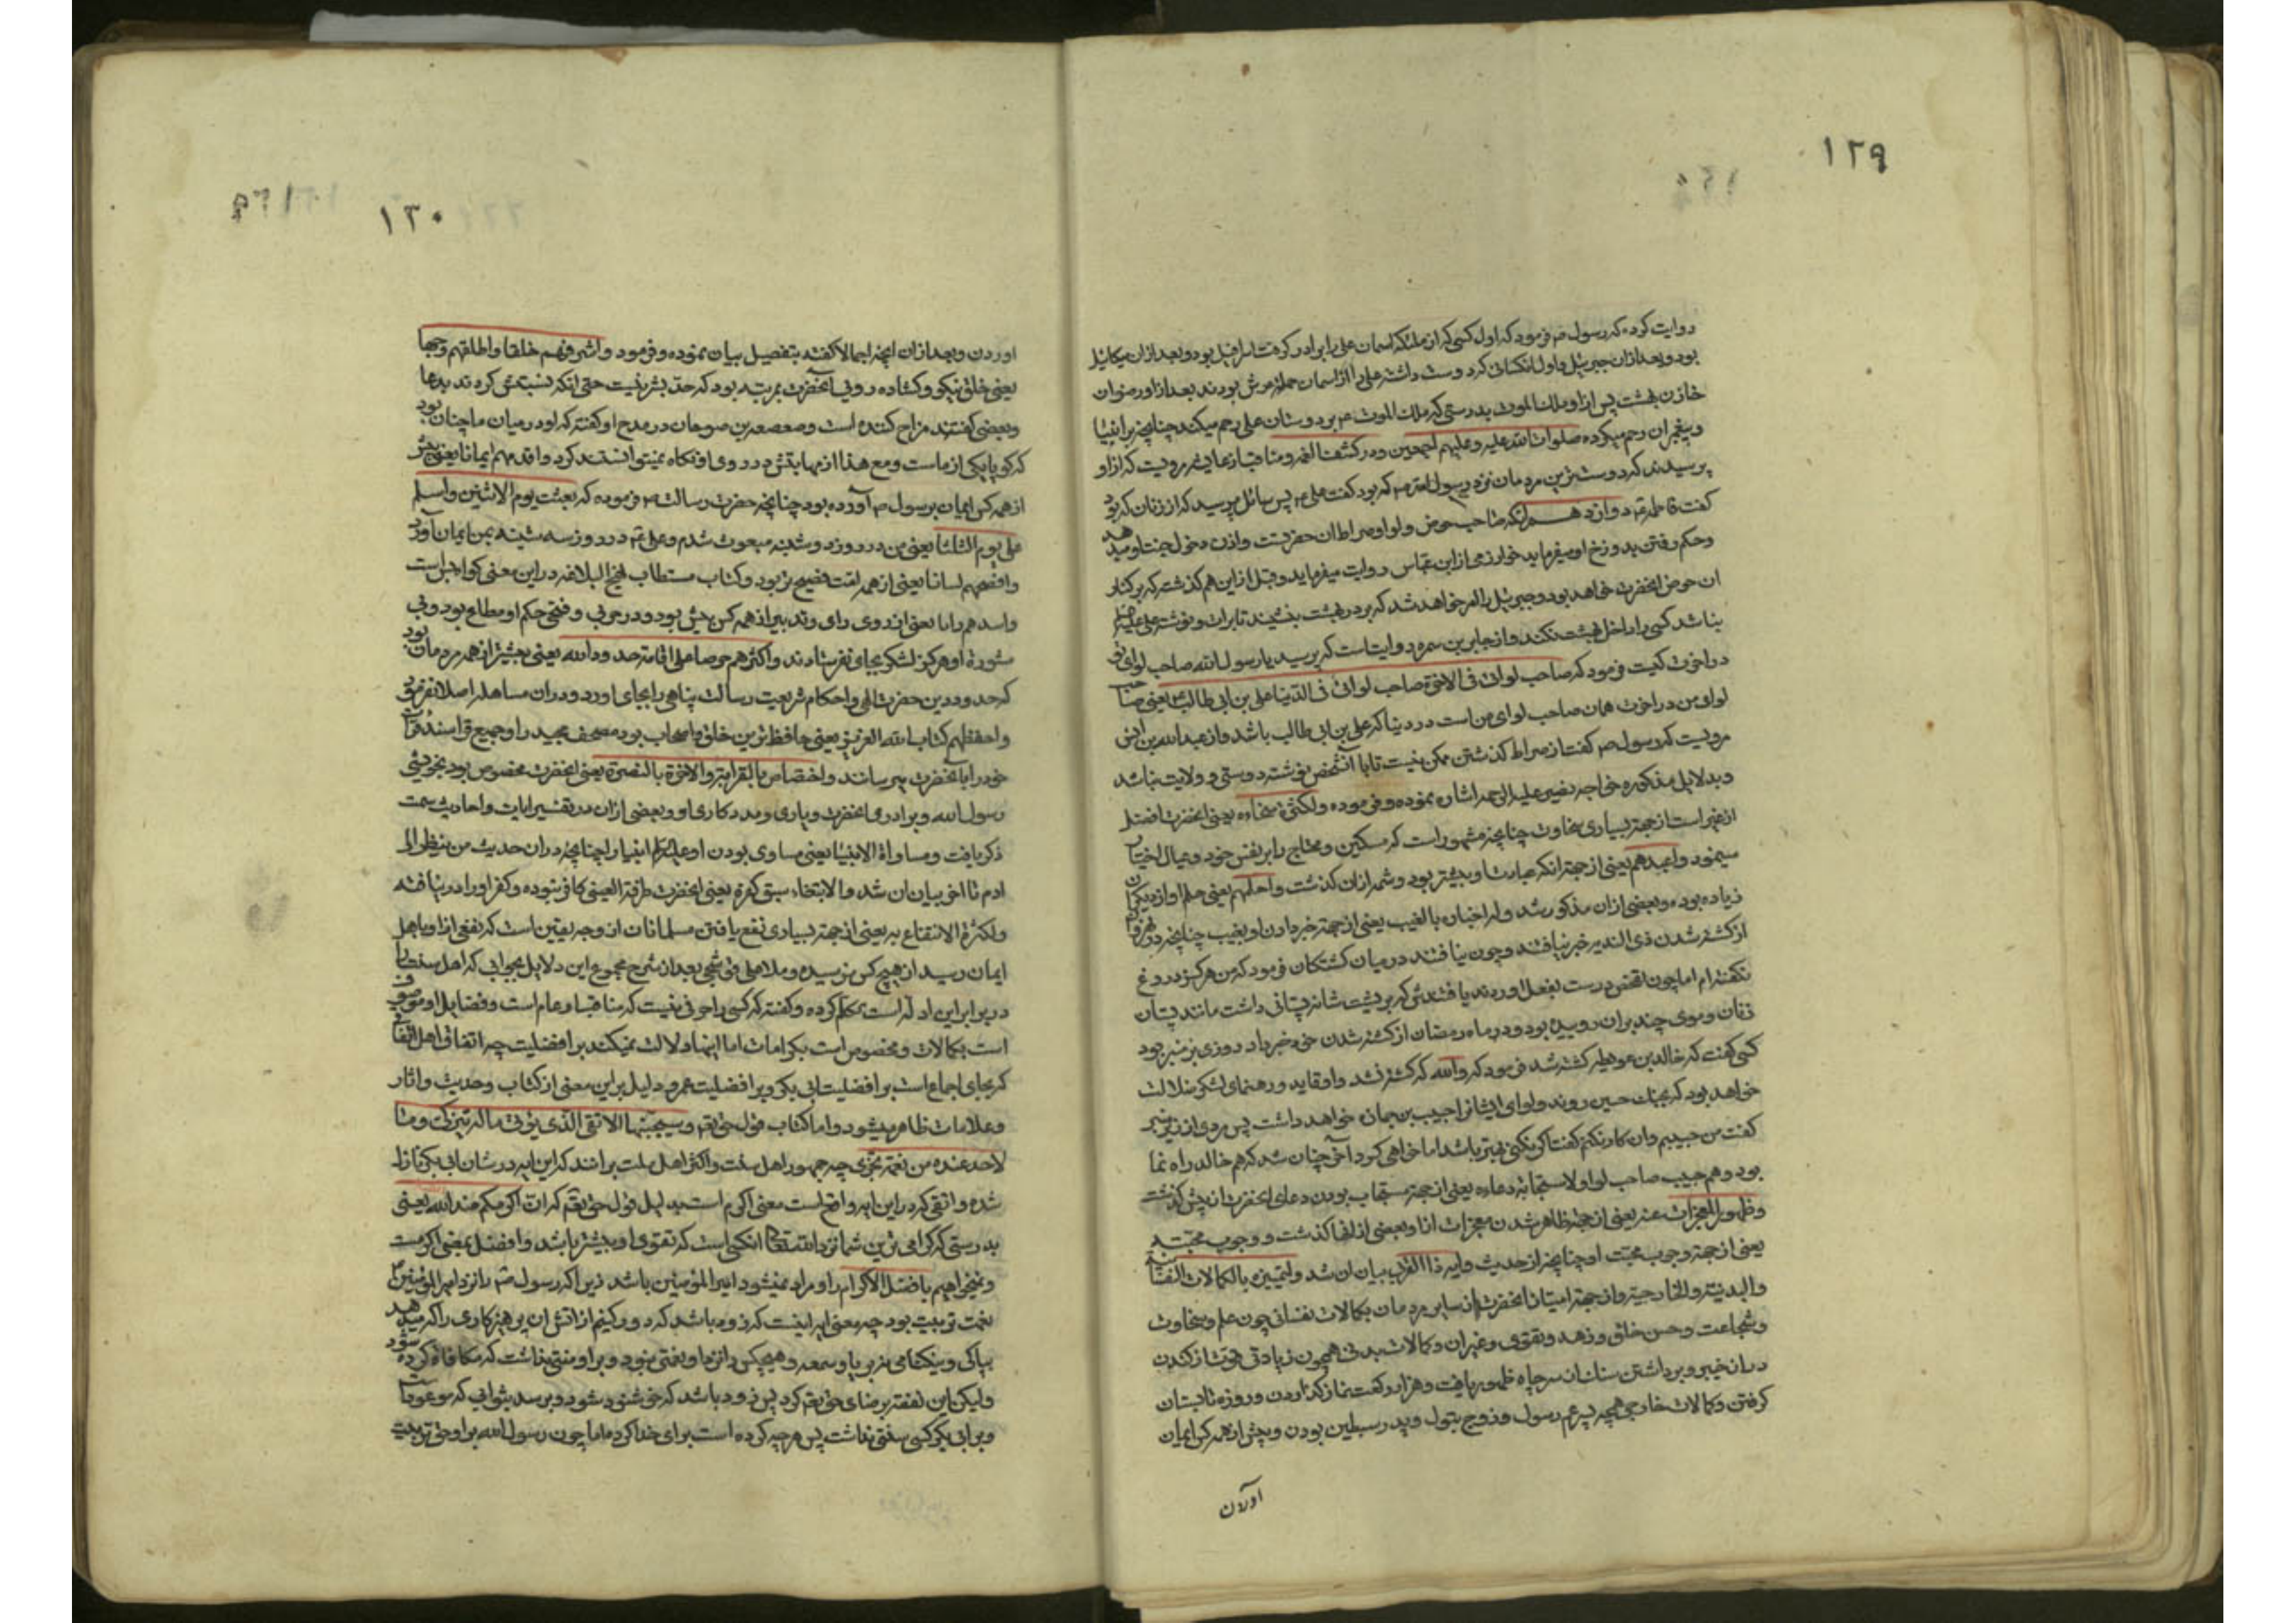 ١٢٩
روایت کرده که رسول ص فرمود که اول کسی که از ملئکه اسمان علی را برادر گرفت اسرافیل بود و بعد ازان میکائیل
بود و بعد ازان جبرئیل و اول انکسانی که دوست داشته علی را از اسمان حمله عرش بودند بعد از او رضوان
خازن بهشت پس از او ملک الموت بدرستی که ملک الموت بر دوستان علی رحم میکند چنانچه بر انبیا
و پیغبران رحم میکرده صلوات الله علیه و علیهم اجمعین و در کشف الغمه و مناقب از عایشه مرویست که از او
پرسیدند که دوسترین مردمان نزد رسول الله ص که بود گفت علی ع پس سائل پرسید که از زنان که بود
گفت فاطمه ع دوازدهم انکه صاحب حوض و لوا و صراط ان حضرتست و اذن دخول جنت او میدهد
و حکم رفتن بدوزخ او میفرماید خوارزمی از ابن عباس روایت میفرماید و قبل از این هم گذشت که بر کنار
ان حوض انحضرت خواهد بود و جبرئیل را امر خواهد شد که بر در بهشت بنشیند تا برات و نوشته علی علیه
نباشد کسی را داخل بهشت نکند و از جابر بن سمره روایت است که پرسید یا رسول الله صاحب لوای تو
در اخرت کیست فرمود که صاحب لوائی فی الاخرة صاحب لوائی فی الدنیا علی بن ابی طالب یعنی صاحب
لوای من در اخرت همان صاحب لوای من است در دنیا که علی بن ابی طالب باشد و از عبدالله بن انس
مرویست که رسول ص گفت از صراط گذشتن ممکن نیست تا با آنشخص نوشته دوستی و ولایت نباشد
و بدلایل مذکوره خواجه نصیر علیه الرحمه اشاره نموده و فرموده و لکثرة سخاوه یعنی انحضرت افضل
از غیر است از جهة بسیاری سخاوت چنانچه مشهور است که مسکین و محتاج را بر نفس خود و عیال اختیار
مینمود و اعبدهم یعنی از جهة انکه عبادت او بیشتر بود و شمه ازان گذشت و احلمهم یعنی حلم او از دیگران
زیاده بوده و بعضی ازان مذکور شد و لاخباره بالغیب یعنی از جهة خبر دادن او بغیب چنانچه در نهروان
از کشته شدن ذی الثدیه خبر نیافتند و چون نیافتند در میان کشتکان فرمود که من هرگز دروغ
نگفته ام اما چون تفحص درست بفعل اوردند یافتندش که بر پشت شانه پستانی داشت مانند پستان
زنان و موی چند بران روییده بود و در ماه رمضان از کشته شدن خود خبر داد روزی بر منبر بود
کسی گفت که خالد بن عویطه کشته شد فرمود که والله که کشته نشد و او قاید و رهنمای لشکر ضلالت
خواهد بود که بجنک حسین روند و لوای ایشانرا حبیب بن جماز خواهد داشت پس مردی از زیر منبر
گفت من حبیبم و ان کار نکنم گفت اگر نکنی بهتر باشد اما خواهی کرد آخر چنان شد که هم خالد راه نما
بود و هم حبیب صاحب لوا و لاستجابة دعاءه یعنی از جهة مستجاب بودن دعای انحضرت از پیش گذشت
و ظهور المعجزات عنه یعنی از جهة ظاهر شدن معجزات از او بعضی از انها گذشت و وجوب محبته
یعنی از جهة وجوب محبت او چنانچه از حدیث و ایه ذا القربی بیان ان شد و لتمیزه بالکمالات النفسانیة
والبدنیة والخارجیة و از جهة امتیاز انحضرت از سایر مردمان بکمالات نفسانی چون علم و سخاوت
و شجاعت و حسن خلق و زهد و تقوی و غیران و کمالات بدنی همچون زیادتی قوتش از کندن
در از خیبر و برداشتن سنک از سر چاه ظهور یافت و هزار رکعت نماز گذاردن و روزه تابستان
گرفتن و کمالات خارجی همچه پسر عم رسول و زوج بتول و پدر سبطین بودن و پیش از همه کس ایمان
اوردن
١٣٠
اوردن و بعد ازان انچه اجمالا گفته بتفصیل بیان نموده و فرمود و اشرفهم خلقا و اطلقهم وجها
یعنی خلق نیکو و گشاده رویی آنحضرت بمرتبه بود که حد بشر نیست حتی انکه نسبتش کردند بدعا
و بعضی گفتند مزاح کننده است و صعصعه بن صوحان در مدح او گفته که او در میان ما چنان بود
که گویا یکی از ماست و مع هذا از مهابتش در روی او نگاه نمیتوانستند کرد و اقدمهم ایمانا یعنی پیشتر
از همه کس ایمان برسول ص آورده بود چنانچه حضرت رسالت ص فرموده که بعثت یوم الاثنین و اسلم
علی یوم الثلثا یعنی من در روز دوشنبه مبعوث شدم و علی ع در روز سه شنبه بمن ایمان آورد
و افصحهم لسانا یعنی از همه امت فصیح تر بود و کتاب مستطاب نهج البلاغه در این معنی گواه بس است
و اسدهم رایا یعنی از روی رای و تدبیر از همه کس پیش بود و در حربی و فتحی حکم او مطاع بود و بی
مشورة او هرگز لشکر بجای نفرستادند و اکثرهم حرصا علی اقامة حدود الله یعنی بیشتر از همه مردمان بود
که حدود دین حضرت الهی و احکام شریعت رسالت پناهی را بجای اورد و دران مساهله اصلا نفرمود
و احفظهم کتاب الله العزیز یعنی حافظ ترین خلق و اصحاب بود مصحف مجید را و جمیع قرا سند قرآت
خود را بانحضرت میرسانند و اختصاص بالقرابة والاخوة بالنصرة یعنی انحضرت مخصوص بود بخویشی
رسول الله و برادری انحضرت و یاری و مددکاری او و بعضی ازان در تفسیر ایات و احادیث سمت
ذکر یافت و مساواة الانبیا یعنی مساوی بودن او علیه السلام انبیا را چنانچه دران حدیث من ینظر الی
ادم تا اخر بیان ان شد و الانتفاء سبق کفره یعنی انحضرت طرفة العینی کافر نبوده و کفر او را در نیافته
و لکثرة الانتفاع به یعنی از جهة بسیاری نفع یافتن مسلمانان از وجه یقین است که نفعی از او باهل
ایمان رسید از هیچ کس نرسیده و ملا علی قوشجی بعد از شرح مجموع این دلایل بجوابی که اهل سنت را
در برابر این ادله است تکلم کرده و گفته که کسی را حرفی نیست که مناقب او عام است و فضایل او موصوف
است بکمالات و مخصوص است بکرامات اما اینها دلالت نمیکند بر افضلیت چه اتفاق اهل اتفاق
که بجای اجماع است بر افضلیت ابی بکر و بر افضلیت عمر و دلیل بر این معنی از کتاب و حدیث و اثار
و علامات ظاهر میشود و اما کتاب قول حق تعم و سیجنبها الاتقی الذی یؤتی ماله یتزکی و ما
لاحد عنده من نعمة تجزی چه جمهور اهل سنت و اکثر اهل ملت برانند که این ایه در شان ابی بکر نازل
شده و اتقی که در این ایه واقع است معنی اکرم است بدلیل قول حق تعم که ان اکرمکم عند الله یعنی
بدرستی که گرامی ترین شما نزد الله تعالی انکس است که تقوی او بیشتر باشد و افضل بمعنی اکرمست
و نمیخواهیم بافضل الا اکرم را و مراد نمیشود امیر المؤمنین باشد زیرا که رسول ص را نزد امیر المؤمنین
نعمت تربیت بود چه معنی ایه اینست که زود باشد که دور کنیم از اتش ان پرهیزکاری را که میدهد
بپاکی و نیکنامی نه بریا و سمعه و هیچکس را نزد او نعمتی نبود و بر او منتی نداشت که مکافاة کرده شود
ولیکن این نفقه برضای حق تعم کرد پس زود باشد که خوشنود شود و برسد بثوابی که موعود است
و بر ابی بکر کسی منتی نداشت پس هر چه کرده است برای خدا کرده اما چون رسول الله بر او حق تربیت